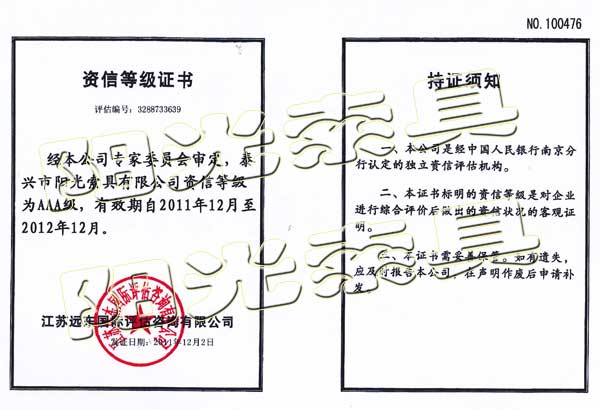 NO.100476
资信等级证书
评估编号:3288733639
经本公司专家委员会审定,泰
兴市阳光索具有限公司资信等级
为AAA级,有效期自2011年12月至
2012年12月。
江苏远东国际评估咨询有限公司
发证日期:2011年12月2日
江苏远东国际评估咨询有限公司
持证须知
一、本公司是经中国人民银行南京分
行认定的独立资信评估机构。
二、本证书标明的资信等级是对企业
进行综合评价后做出的资信状况的客观证
明。
三、本证书需妥善保管。如有遗失,
应及时报告本公司,在声明作废后申请补
发。
阳光索具
阳光索具